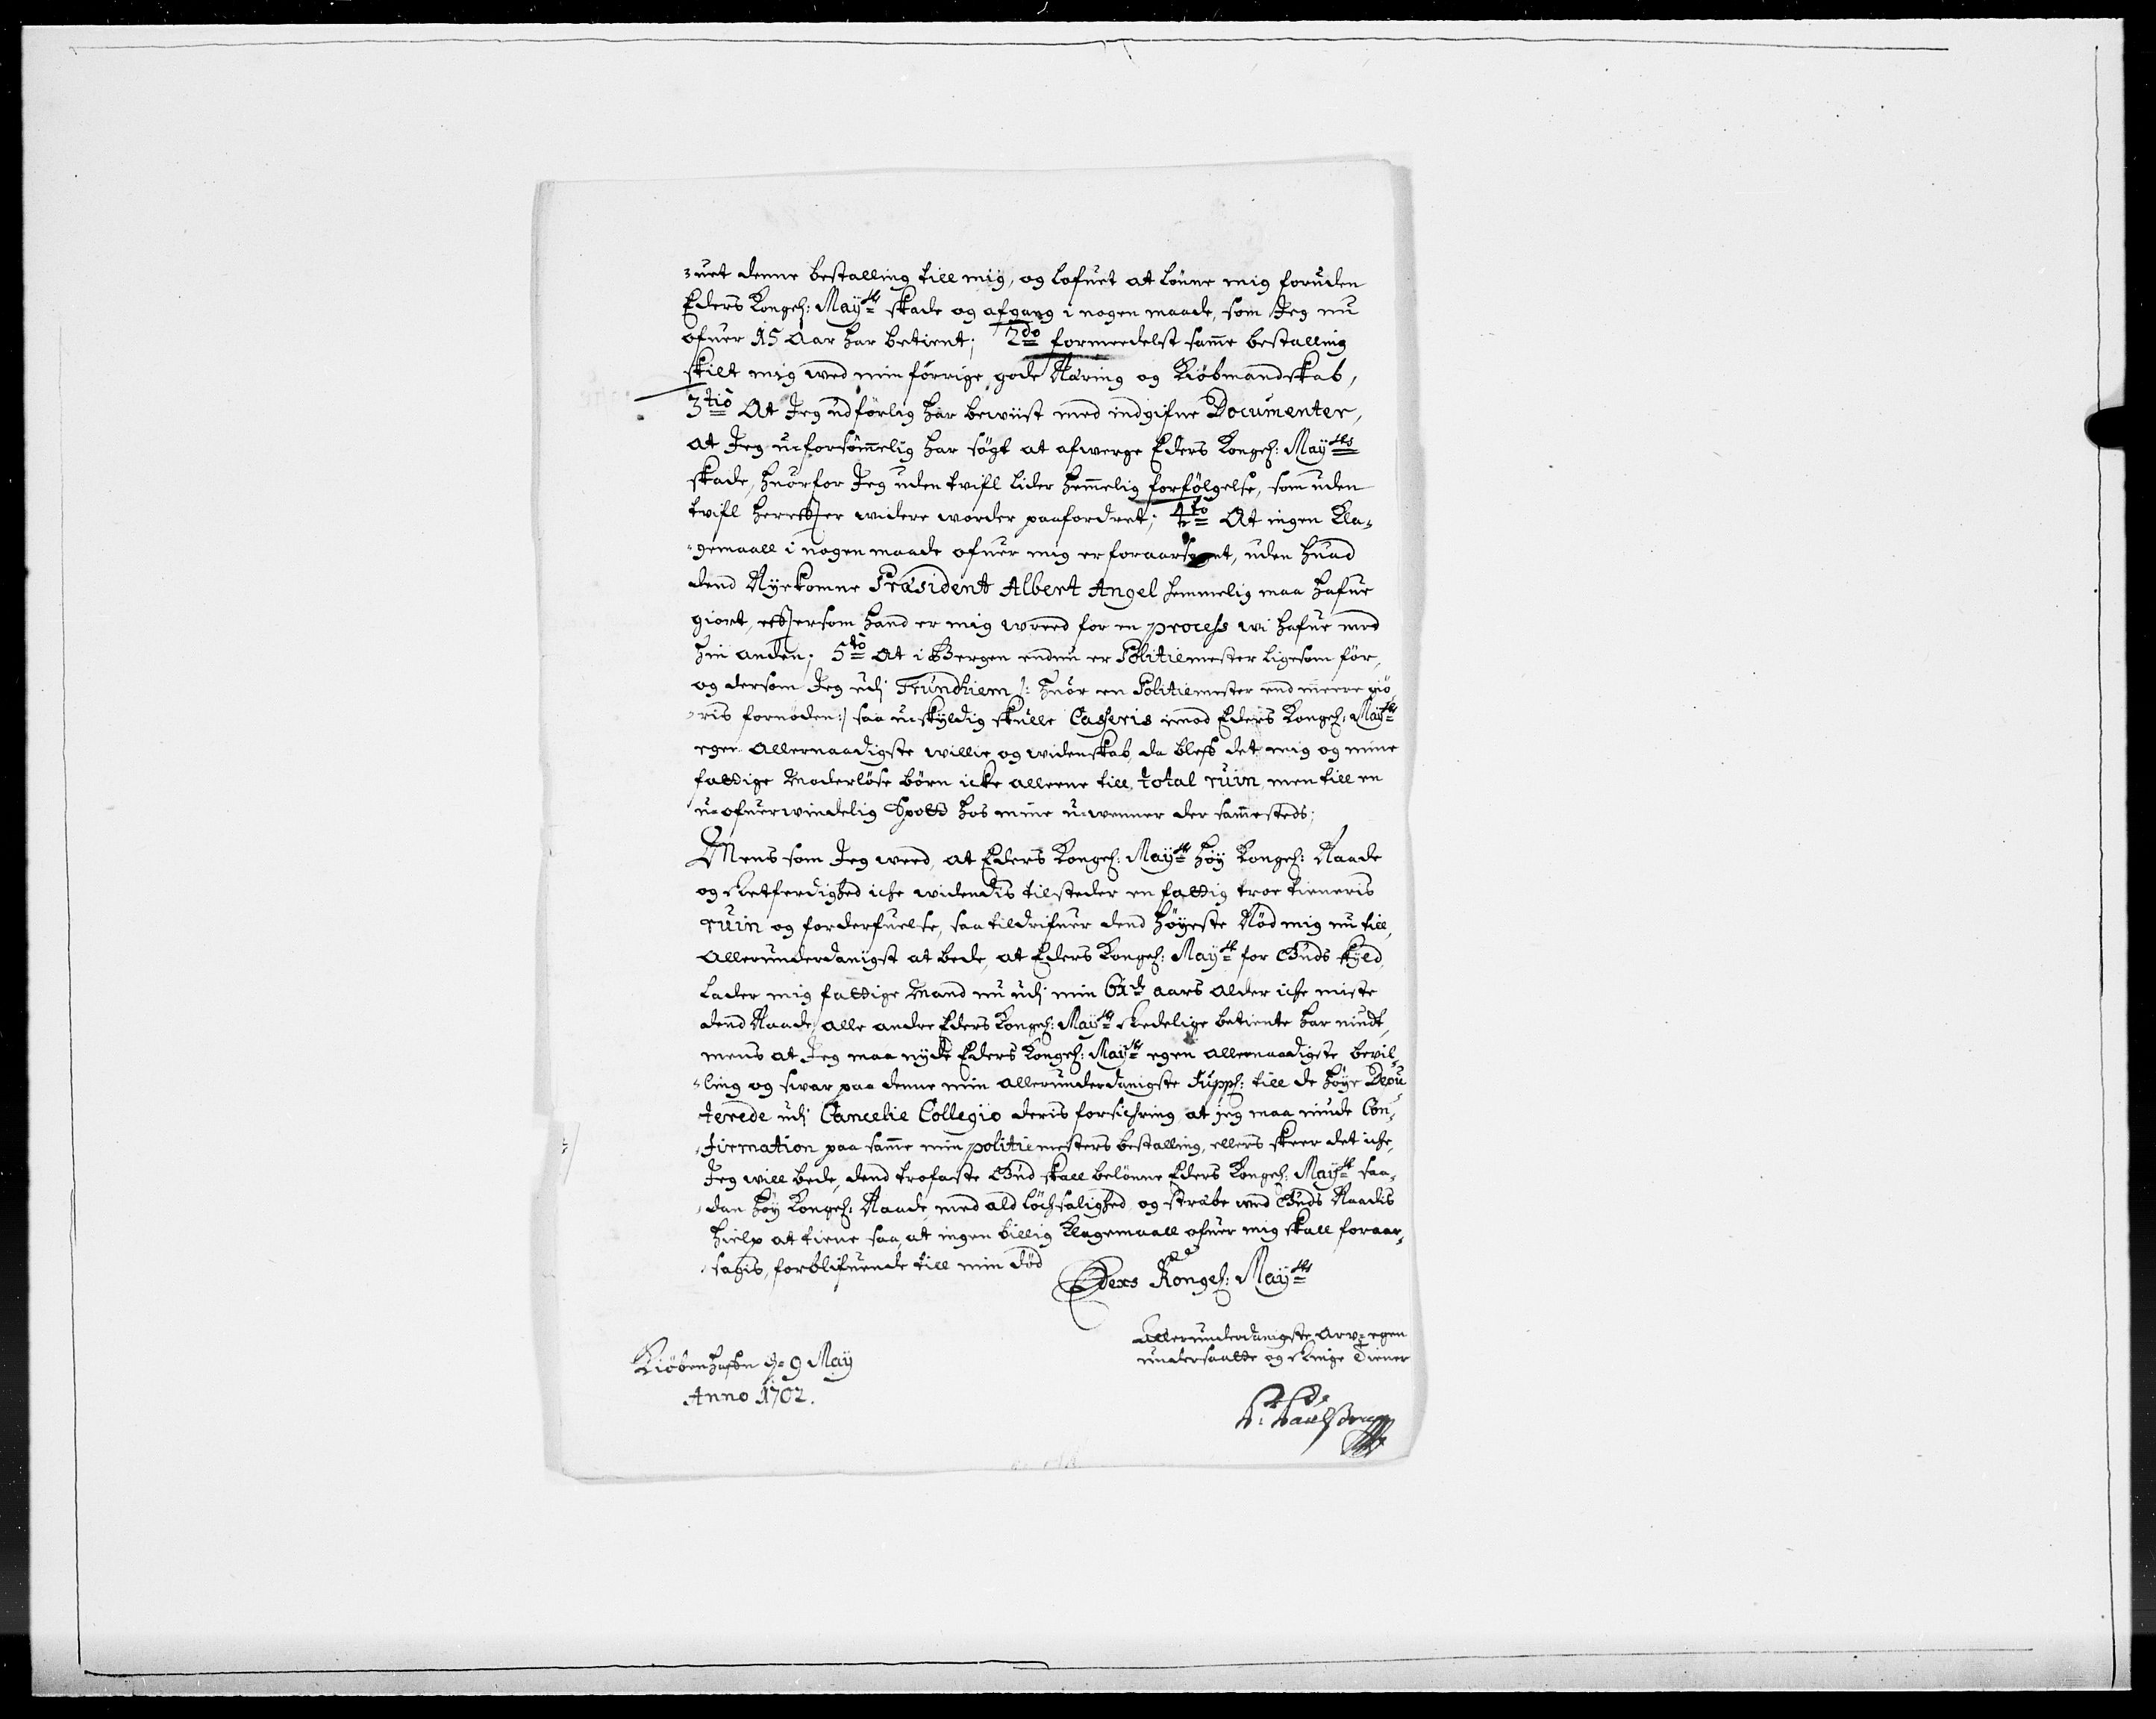 =uet denne bestalling till mig, og lofuet at lönne mig foruden
Eders Kongel: Mayts skade og afgang i nogen maade, som Jeg nu
ofuer 15 Aar har betient; 2do formedelst samme bestalling
skilt mig wed min förrige gode Næring og Kiöbmandskab,
3tio At Jeg udförlig har bewiist med indgifne Documenter,
at Jeg u-forsömmelig har sögt at afwerge Eders Kongel: Mayts
skade, huorfor Jeg uden twifl lider hemmelig forfölgelse, som uden
twifl herefter widere worder paafordret; 4to At ingen Kla-
=gemaall i nogen maade ofuer mig er foraarsaget, uden huad
dend Nyekomne Præsident Albert Angel hemmelig maa hafue
giort, eftersom hand er mig wreed for en process wi hafue med
hin anden; 5to At i Bergen endnu er Politiemester ligesom för,
og dersom Jeg udj Trundhiem /: huor en Politiemester end meere giö
=ris fornöden :/ saa u-skyldig skulle Casseris imod Eders Kongel: Mayts
egen allernaadigste willie og widenskab, da bleff det mig og mine
fattige Moderlöse börn icke alleene till total ruin, men till en
u-ofuerwindelig Spott hos mine u-wenner der sammesteds;
Mens som Jeg weed, at Eders Kongel: Mayts höy Kongel: Naade
og Retferdighed iche widendis tilsteder en fattig troe tieneris
ruin og forderfuelse, saa tildrifuer dend höyeste Nöd mig nu till,
allerunderdanigst at bede, at Eders Kongel: Mayt for Guds skyld
lader mig fattige Mand nu udj min aars alder iche miste
dend Naade, alle andre Eders Kongel: Mayts Redelige betiente har niudt,
mens at Jeg maa nyde Eders Kongel: Mayts egen allernaadigste bevil-
=ling og swar paa denne min allerunderdanigste Suppl: till de höye Depu
terede udj Cancelie Collegio deris forsichring, at jeg maa niude Con-
=firmation paa samme min politiemesters bestalling, ellers skeer det iche,
Jeg will bede, dend trofaste Gud skall belönne Eders Kongel: Mayt saa-
=dan höy Kongel: Naade, med ald löchsalighed, og stræbe med Guds Naadis
hielp at tiene saa, at ingen billig Klagemaall ofuer mig skall foraar-
=sagis, forblifuende till min död
Eders Kongel: Mayts
allerunderdanigste arv-egen
undersaatte og Ringe Tiener
Kiöbenhafn d. 9 May
Anno 1702.